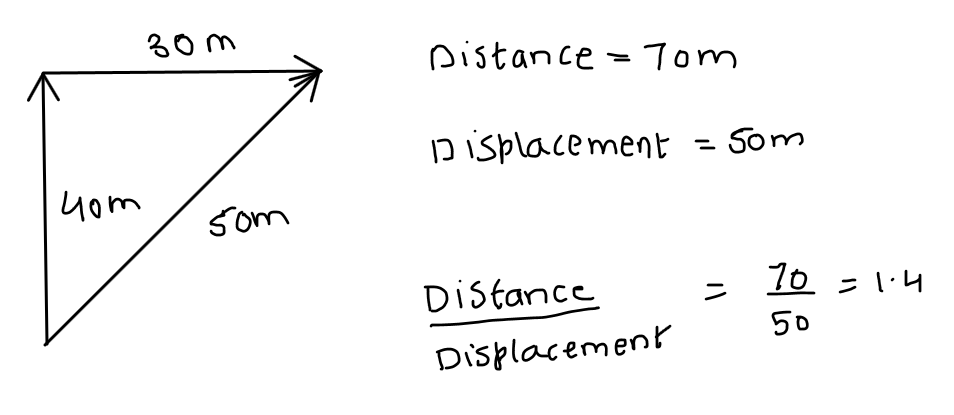 30m
40m
50m
Distance = 70m
Displacement = 50m
Distance
Displacement
= 70
50
= 1.4